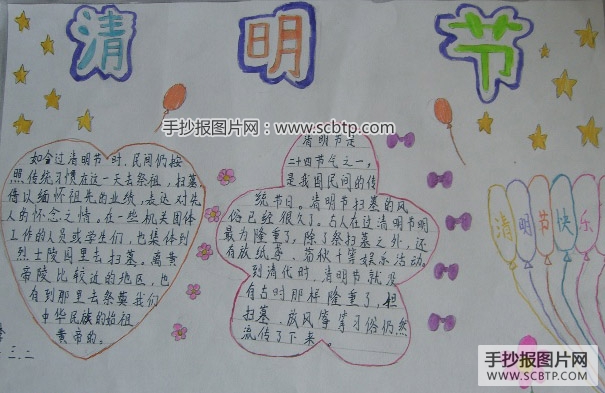 清明节
手抄报图片网:
www.scbtp.com
如今过清明节时,民间仍按
照传统习惯在这一天去祭祖,扫墓
得以缅怀祖先的业绩,表达对先
人的怀念之情。在一些机关团体
工作的人员或学生们,也集体到
烈士陵园里去扫墓。离黄
帝陵比较近的地区,也
有到那里去祭奠我们
中华民族的始祖
黄帝的。
清明节是
二十四节气之一,
是我国民间的传
统节日。清明节扫墓的风
俗已经很久了。古人在过清明节明
最为隆重了,除了祭扫墓之外,还
有放纸筝、荡秋千等娱乐活动。
到清代时,清明节就没
有古时那样隆重了,但
扫墓、放风筝等习俗仍然
流传了下来。
清明节快乐
三.二
手抄报图片网
www.SCBTP.com